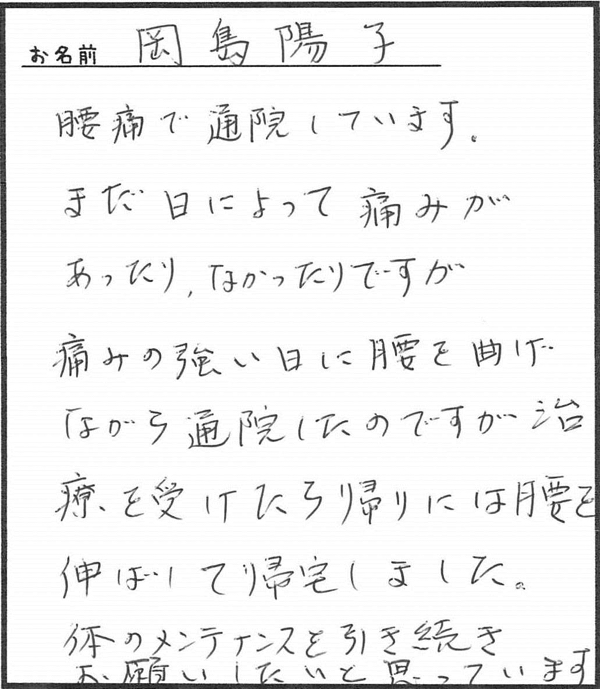 お名前 岡島陽子
腰痛で通院しています。
まだ日によって痛みが
あったり,なかったりですが
痛みの強い日に腰を曲げ
ながら通院したのですが治
療を受けたら帰りには腰を
伸ばして帰宅しました。
体のメンテナンスを引き続き
お願いしたいと思っています